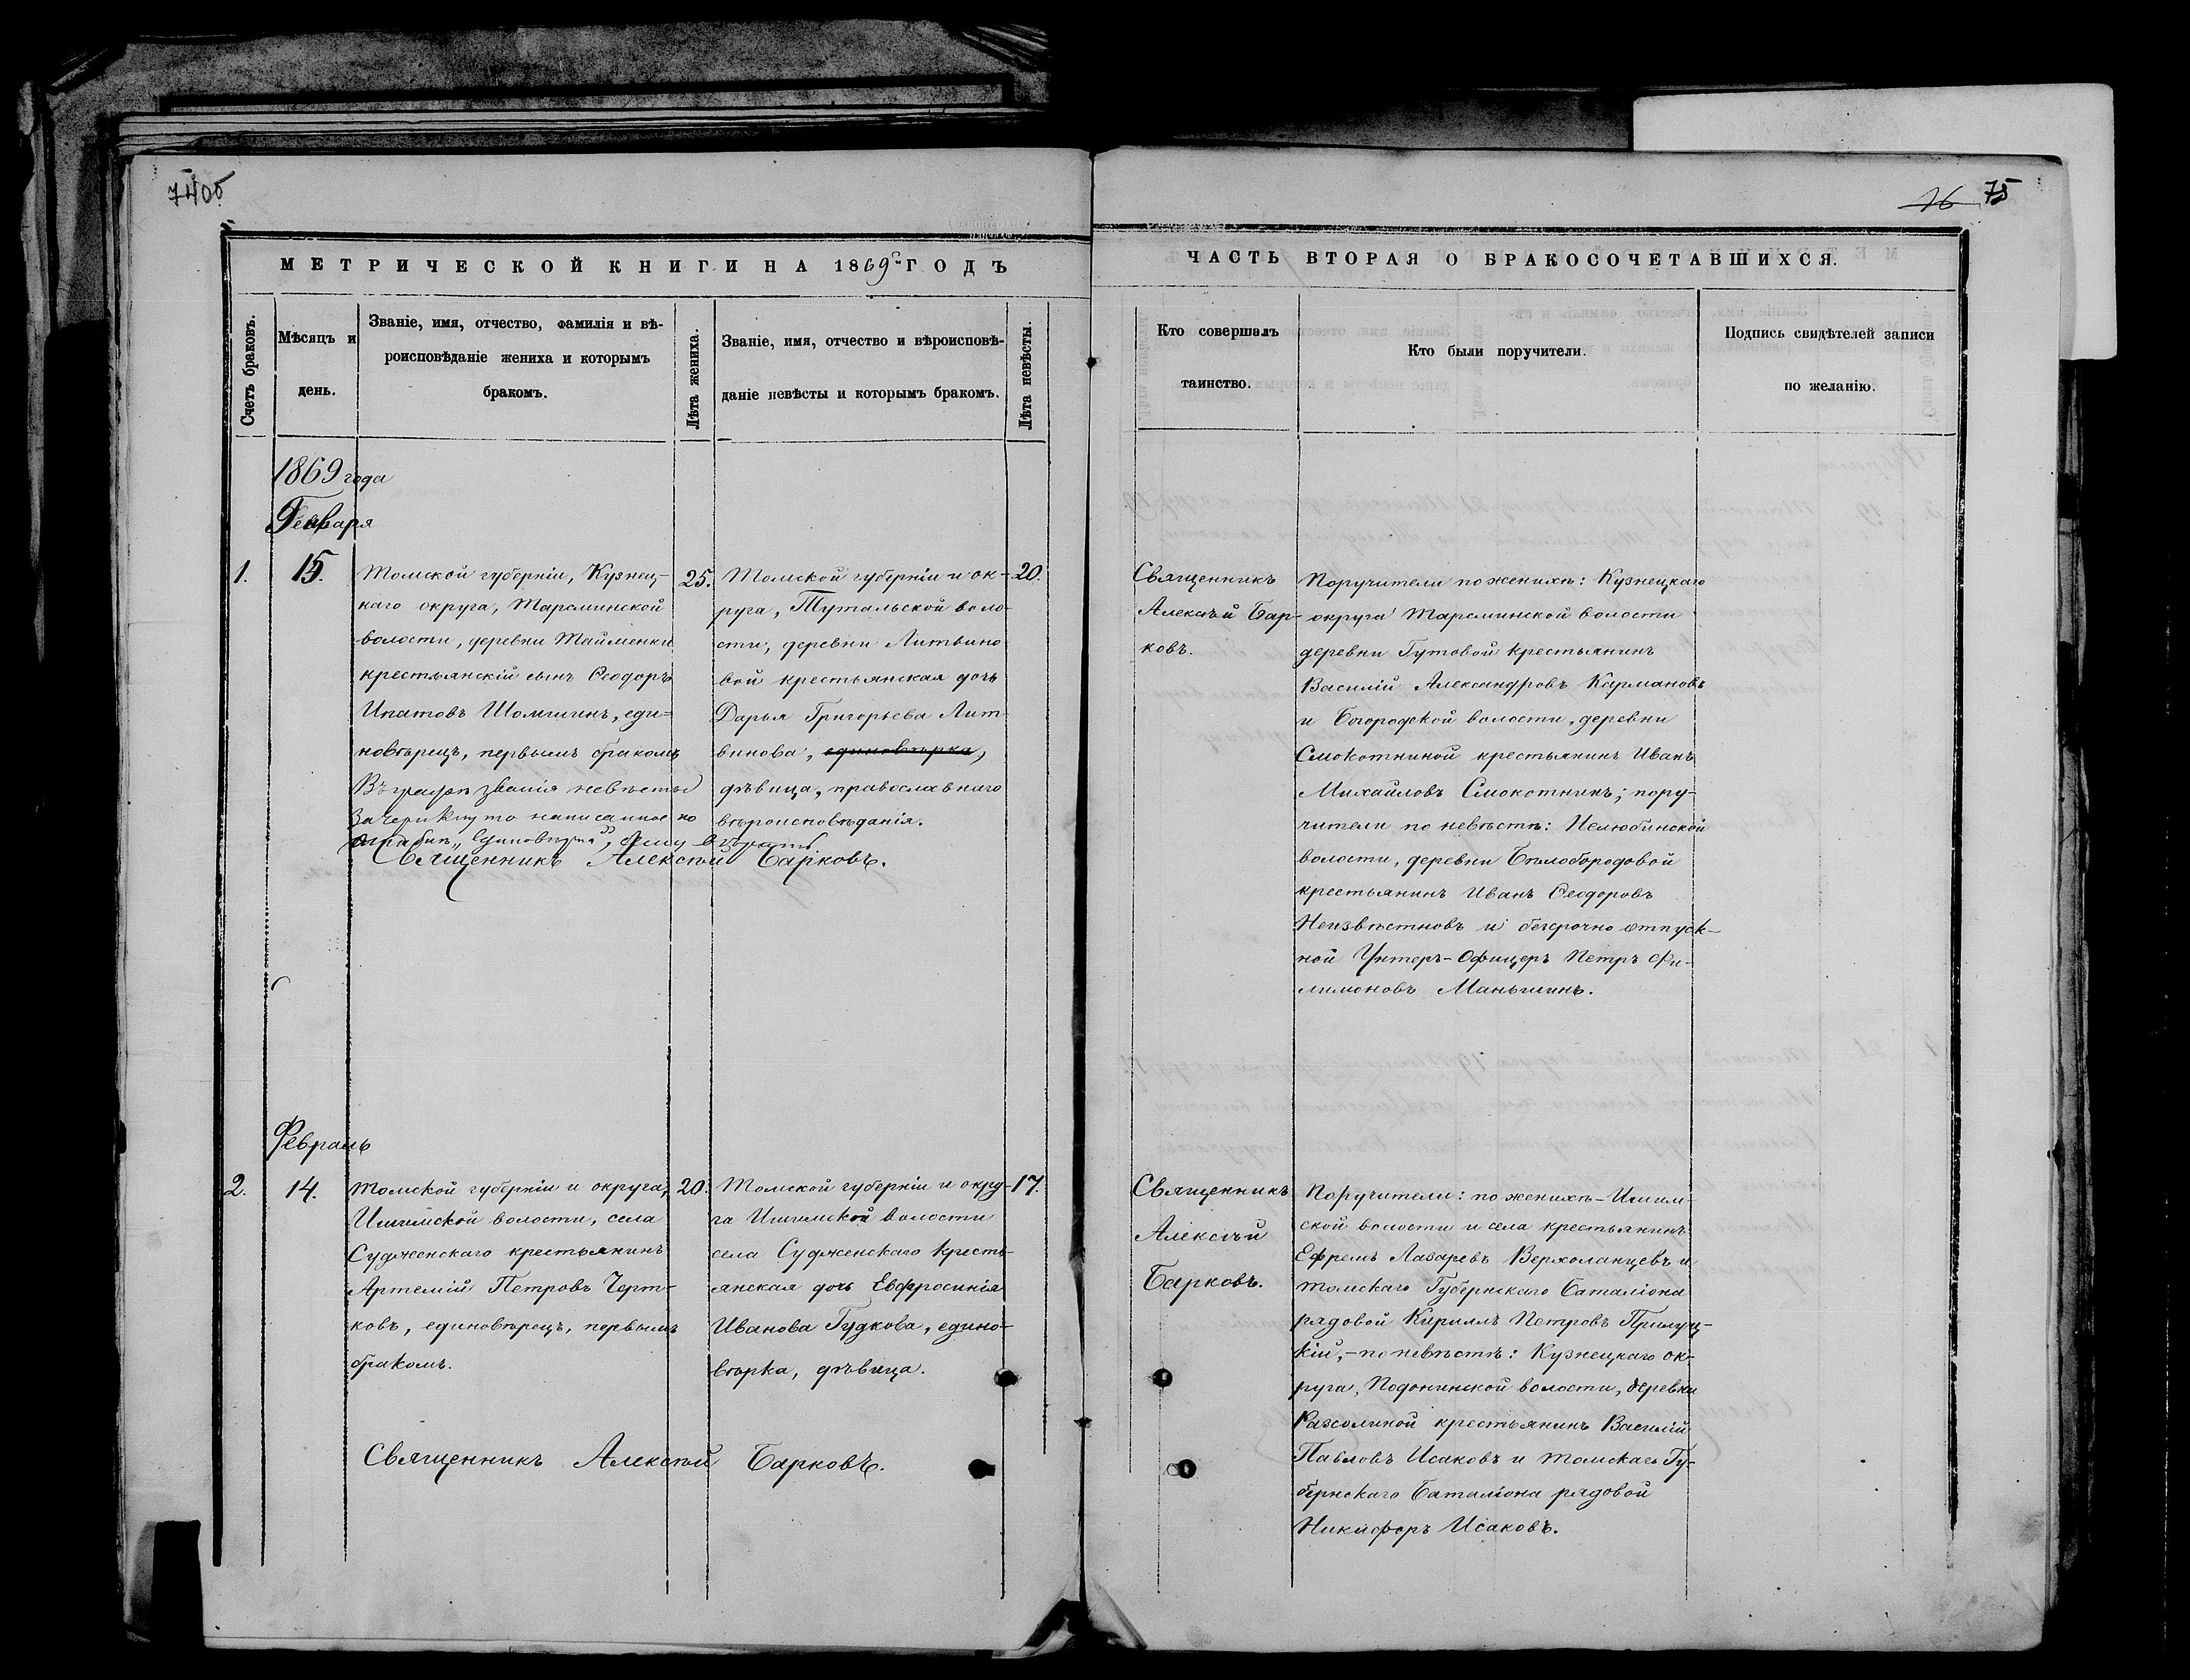 74об
МЕТРИЧЕСКОЙ КНИГИ НА 1869й ГОДЪ
Счетъ браковъ.
Мѣсяцъ и
день.
Званіе, имя, отчество, фамилія и вѣ-
роисповѣданіе жениха и которымъ
бракомъ.
Лѣта жениха.
Званіе, имя, отчество и вѣроисповѣ-
даніе невѣсты и которымъ бракомъ.
Лѣта невѣсты.
1869 года
Генваря
1.
15.
Томской губерніи, Кузнец-
каго округа, Тарсминской
волости, деревни Тайменки
крестьянскій сынъ Ѳеодоръ
Ипатовъ Шомшинъ, еди-
новѣрецъ, первымъ бракомъ
Въ графѣ званія невѣсты
зачеркнуто написанное по
ошибкѣ „единовѣрка",
25.
Томской губерніи и ок-
руга, Тутальской воло-
сти, деревни Литвино
вой крестьянская дочь
Дарья Григорьева Лит-
винова, единовѣрка,
дѣвица, православнаго
вѣроисповѣданія.
20.
Священникъ Алексѣй Барковъ.
Февраль
2.
14.
Томской губерніи и округа,
Ишимской волости, села
Судженскаго крестьянинъ
Артемій Петровъ Черт-
ковъ, единовѣрецъ, первымъ
бракомъ.
20.
Томской губерніи и окру-
га Ишимской волости
села Судженскаго кресть-
янская дочь Евфросинія
Иванова Гудкова, едино-
вѣрка, дѣвица.
17.
Священникъ Алексѣй Барковъ.
76 75
ЧАСТЬ ВТОРАЯ О БРАКОСОЧЕТАВШИХСЯ.
Кто совершалъ
таинство.
Кто были поручители.
Подпись свидѣтелей записи
по желанію.
Священникъ
Алексѣй Бар-
ковъ.
Поручители по женихѣ: Кузнецкаго
округа Тарсминской волости
деревни Гутовой крестьянинъ
Василій Александровъ Кармановъ
и Богородской волости, деревни
Смокотниной крестьянинъ Иванъ
Михайловъ Смокотнинъ; пору-
чители по невѣстѣ: Нелюбинской
волости, деревни Бѣлобородовой
крестьянинъ Иванъ Ѳеодоровъ
Неизвѣстновъ и безсрочно отпуск-
ной Унтеръ-Офицеръ Петръ Фи-
лимоновъ Маньшинъ.
Священникъ
Алексѣй
Барковъ.
Поручители: по женихѣ - Ишим-
ской волости и села крестьянинъ
Ефремъ Лазаревъ Верхоланцевъ и
Томскаго Губернскаго Баталіона
рядовой Кириллъ Петровъ Прилуц-
кій, - по невѣстѣ: Кузнецкаго ок-
руга, Подонинской волости, деревни
крестьянинъ Василій
Павловъ Исаковъ и Томскаго Гу-
бернскаго Баталіона рядовой
Никифоръ Исаковъ.